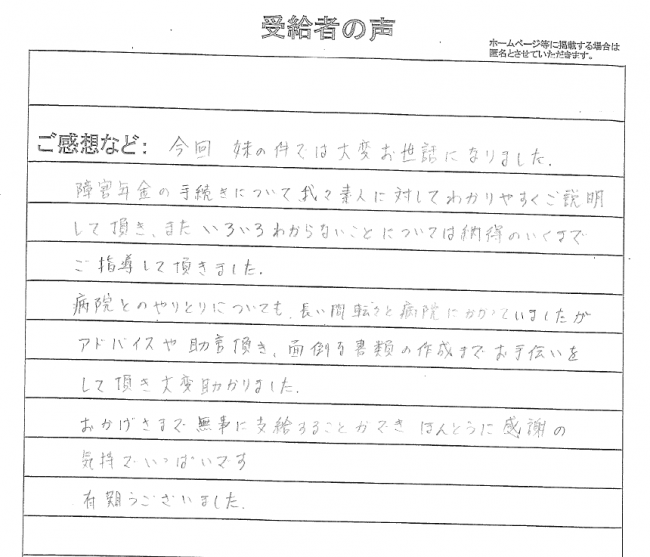 受給者の声
ホームページ等に掲載する場合は
匿名とさせていただきます。
ご感想など： 今回 妹の件では大変お世話になりました.
障害年金の手続きについて、我々素人に対してわかりやすくご説明
して頂き、また いろいろわからないことについては納得のいくまで
ご指導して頂きました.
病院とのやりとりについても、長い間転々と病院にかかっていましたが
アドバイスや助言頂き、面倒な書類の作成までお手伝いを
して頂き大変助かりました.
おかげさまで無事に支給することができ ほんとうに感謝の
気持でいっぱいです
有難うございました.